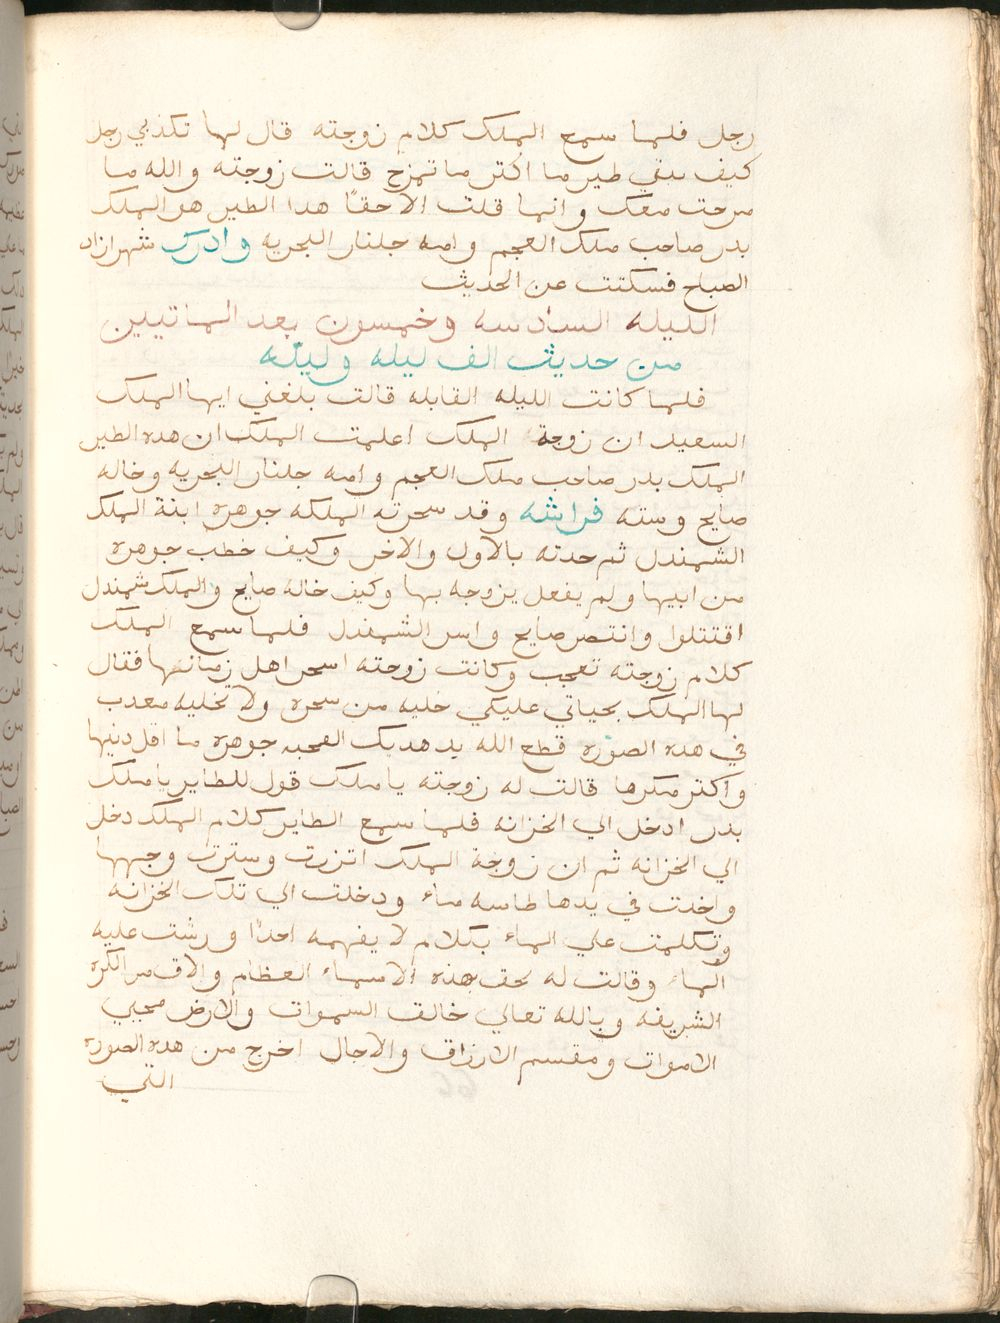 رجل فلما سمع الملك كلام زوجته قال لها تكذبي رجل
كيف يبقي طير ما اكتر ما تمزح قالت زوجته والله ما
مزحت معك وانما قلت الا حقًا هدا الطير هو الملك
بدر صاحب ملك العجم وامه جلنار البحريه وادرك شهرازاد
الصباح فسكتت عن الحديث
الليله السادسه وخمسون بعد الماتيين
من حديث الف ليله وليله
فلما كانت الليله القابله قالت بلغني ايها الملك
السعيد ان زوجة الملك اعلمت الملك ان هده الطير
الملك بدر صاحب ملك العجم وامه جلنار البحريه وخاله
صايح وسته فراشه وقد سحرته الملكه جوهره ابنة الملك
الشمندل ثم حدته بالاول والاخر وكيف خطب جوهره
من ابيها ولم يفعل يزوجه بها وكيف خاله صايح والملك شمندل
اقتتلوا وانتصر صايح واسر الشمندل فلما سمع الملك
كلام زوجته تعجب وكانت زوجته اسحر اهل زمانها فقال
لها الملك بحياتي عليكي خليه من سحره ولا تخليه معدب
في هده الصوره قطع الله يد هديك القحبه جوهره ما اقل دنيها
واكتر مكرها قالت له زوجته يا ملك قول للطاير يا ملك
بدر ادخل الي الخزانه فلما سمع الطاير كلام الملك دخل
الي الخزانه ثم ان زوجة الملك اتزرت وسترت وجهها
واخدت في يدها طاسه ماء ودخلت الي تلك الخزانه
وتكلمت علي الماء بكلام لا يفهمه احدًا ورشت عليه
الماء وقالت له بحق هذه الاسماء العظام والاقسام الكره
الشريفه وبالله تعالي خالق السموات والارض محيي
الاموات ومقسم الارزاق والاجال اخرج من هده الصوره
التي